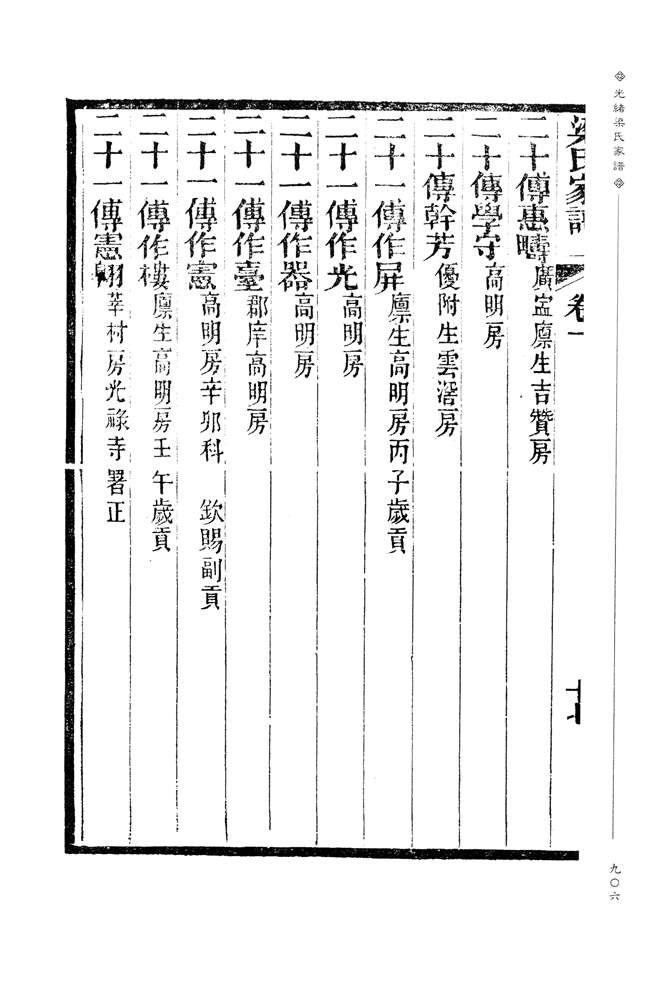 光緒梁氏家譜
九〇六
梁氏家譜 卷一 十七
二十傳惠疇廣寧廩生吉贊房
二十傳學守高明房
二十傳幹芳優附生雲滘房
二十一傳作屏廩生高明房丙子歲貢
二十一傳作光高明房
二十一傳作器高明房
二十一傳作臺郡庠高明房
二十一傳作憲高明房辛卯科 欽賜副貢
二十一傳作樓廩生高明房壬午歲貢
二十一傳憲翊莘村房光祿寺署正